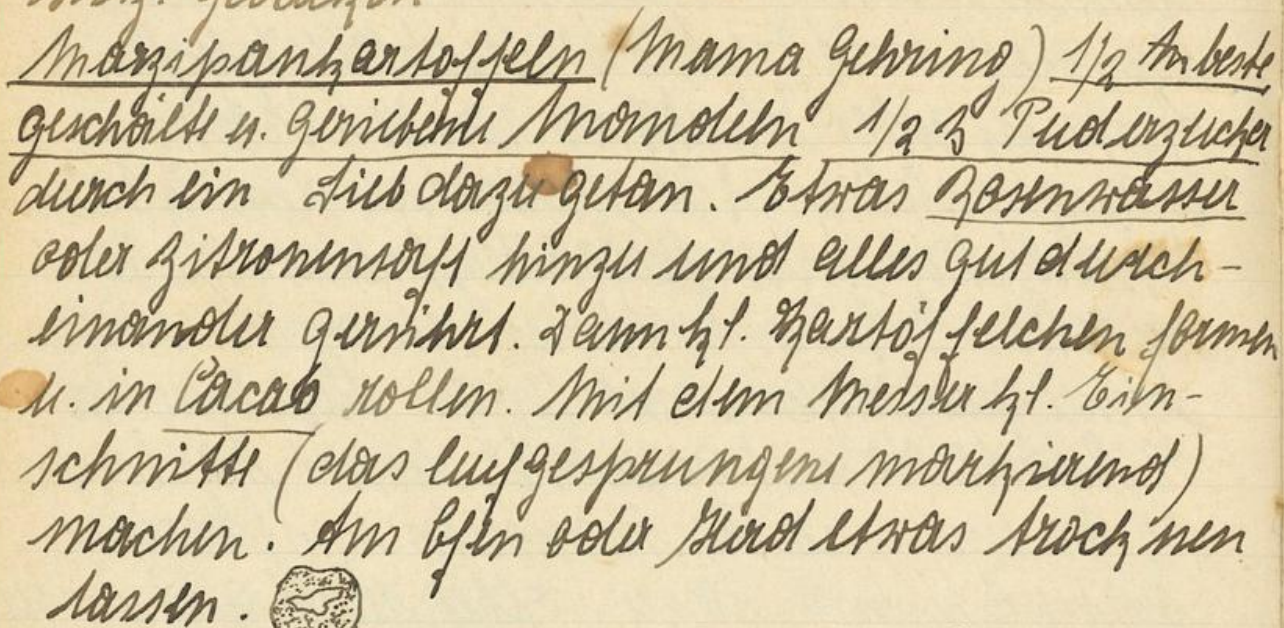 Marzipankartoffeln (Mama Gehring) 1/2 beste
geschälte u. geriebene Mandeln 1/2 ℔ Puderzucker
durch ein Sieb dazu getan. Etwas Rosenwasser
oder Zitronensaft hinzu und alles gut durch-
einander gerührt. Dann kl. Kartöffelchen formen
u. in Cacao rollen. Mit dem Messer kl. Ein-
schnitte (das aufgesprungene markierend)
machen. Am Ofen oder Herd etwas trocknen
lassen.